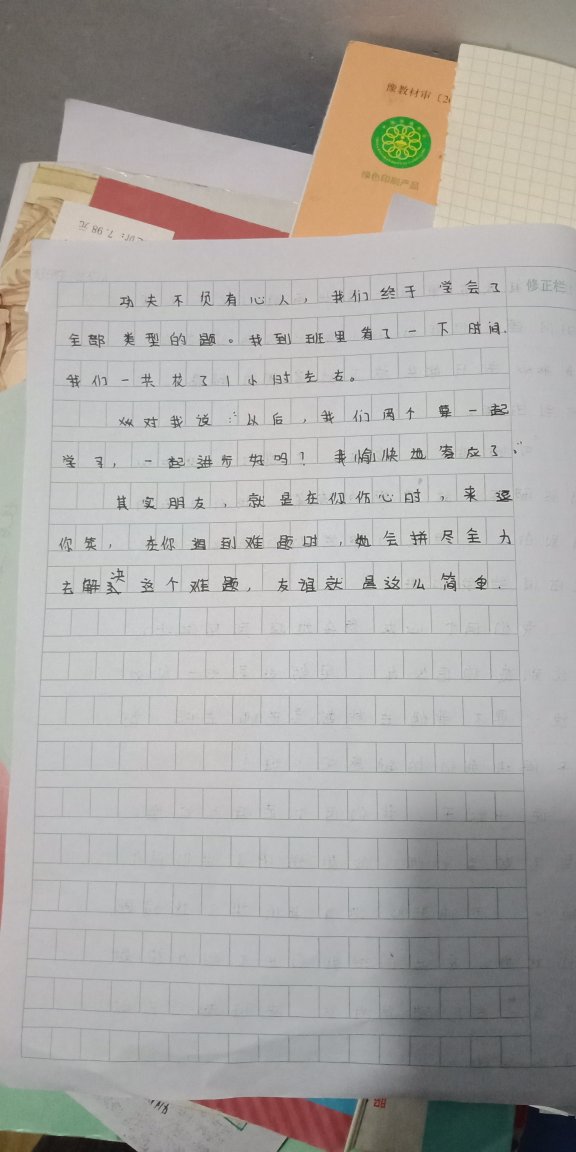 豫教材审〔20
绿色印刷产品
7.98元
修正栏
功夫不负有心人，我们终于学会了
全部类型的题。我到班里看了一下时间.
我们一共花了1小时左右。
××对我说："以后，我们两个算一起
学习，一起进步好吗？我愉快地答应了。"
其实朋友，就是在你伤心时，来逗
你笑，在你遇到难题时，她会拼尽全力
去解决这个难题，友谊就是这么简单.